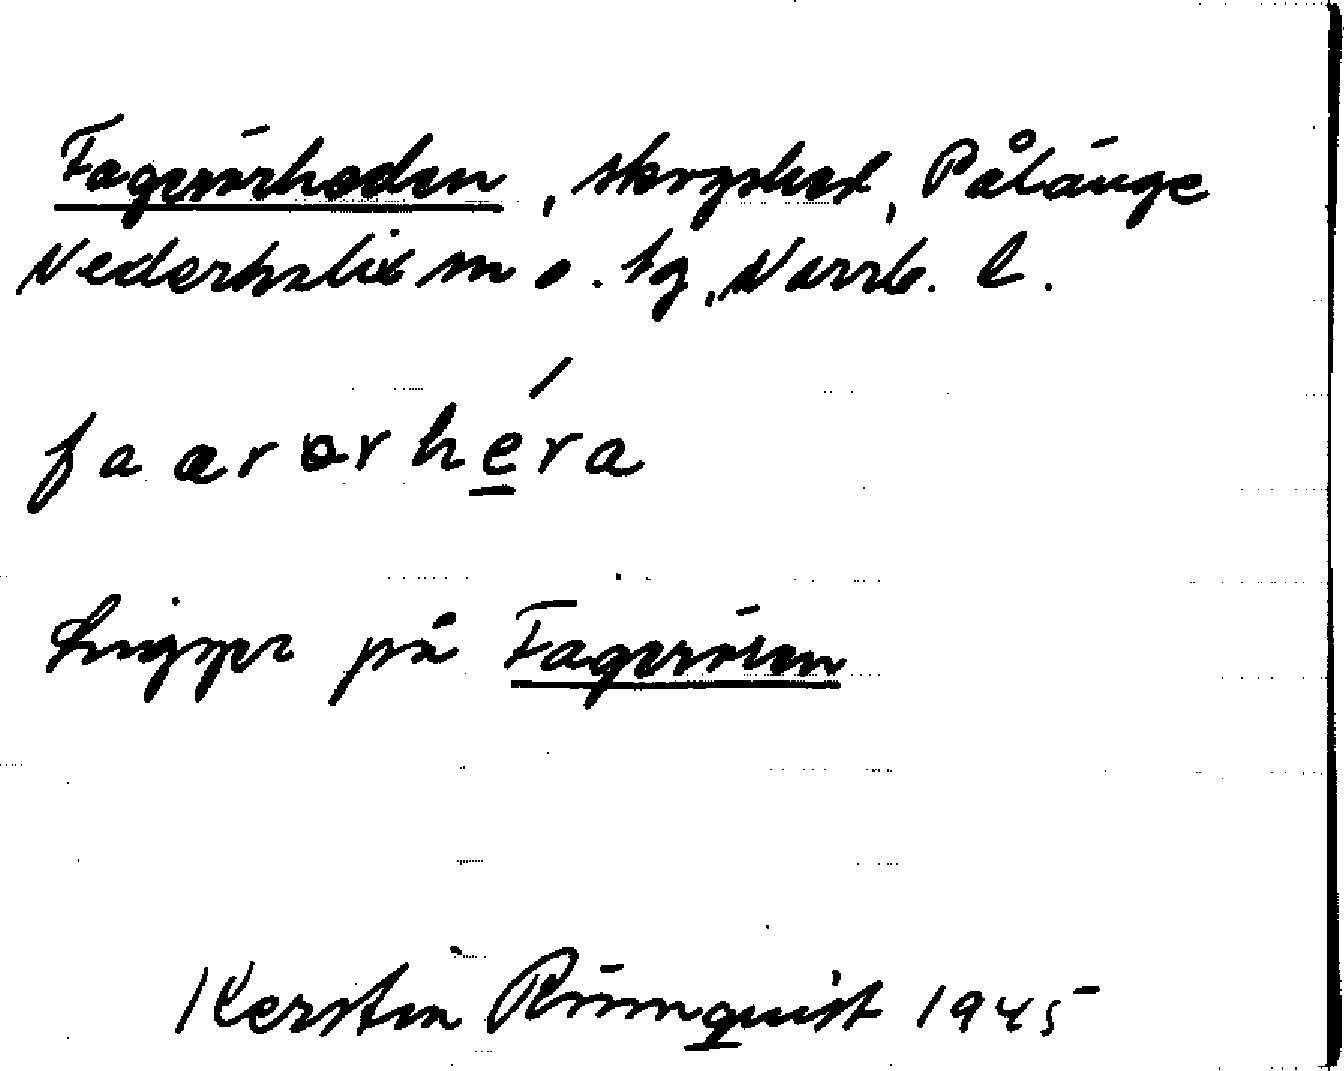 Fagerörheden, skogshed, Pålänge
Nederkalix sn o. tg, Norrb. l.
faarərhéra
Ligger på Fagerören
Kerstin Rönnquist 1945